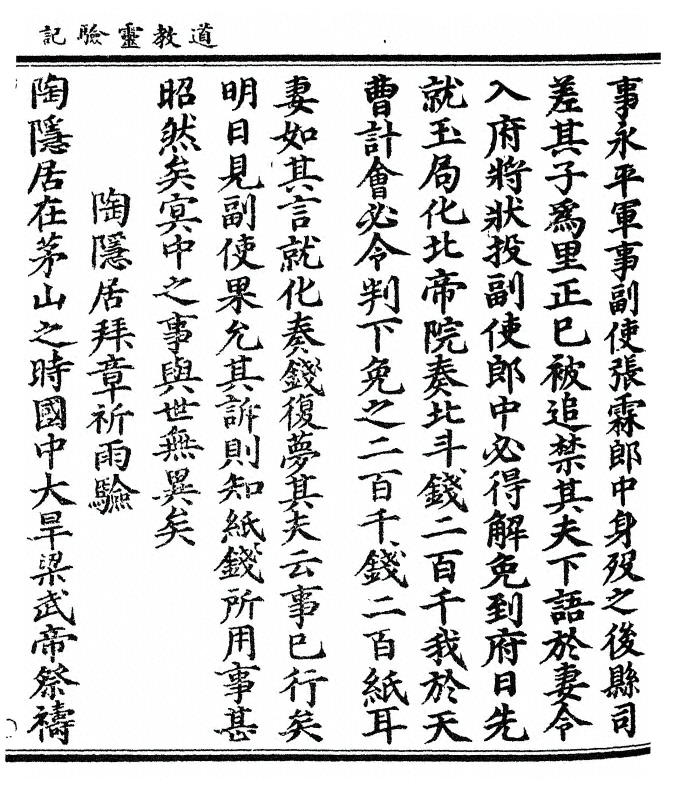 道教靈驗記
事永平軍事副使張霖郎中身歿之後縣司
差其子爲里正已被追禁其夫下語於妻令
入府將狀投副使郎中必得解免到府日先
就玉局化北帝院奏北斗錢二百千我於天
曹計會必令判下免之二百千錢二百紙耳
妻如其言就化奏錢復夢其夫云事已行矣
明日見副使果允其訴則知紙錢所用事甚
昭然矣冥中之事與世無異矣
陶隱居拜章祈雨驗
陶隱居在茅山之時國中大旱梁武帝祭禱